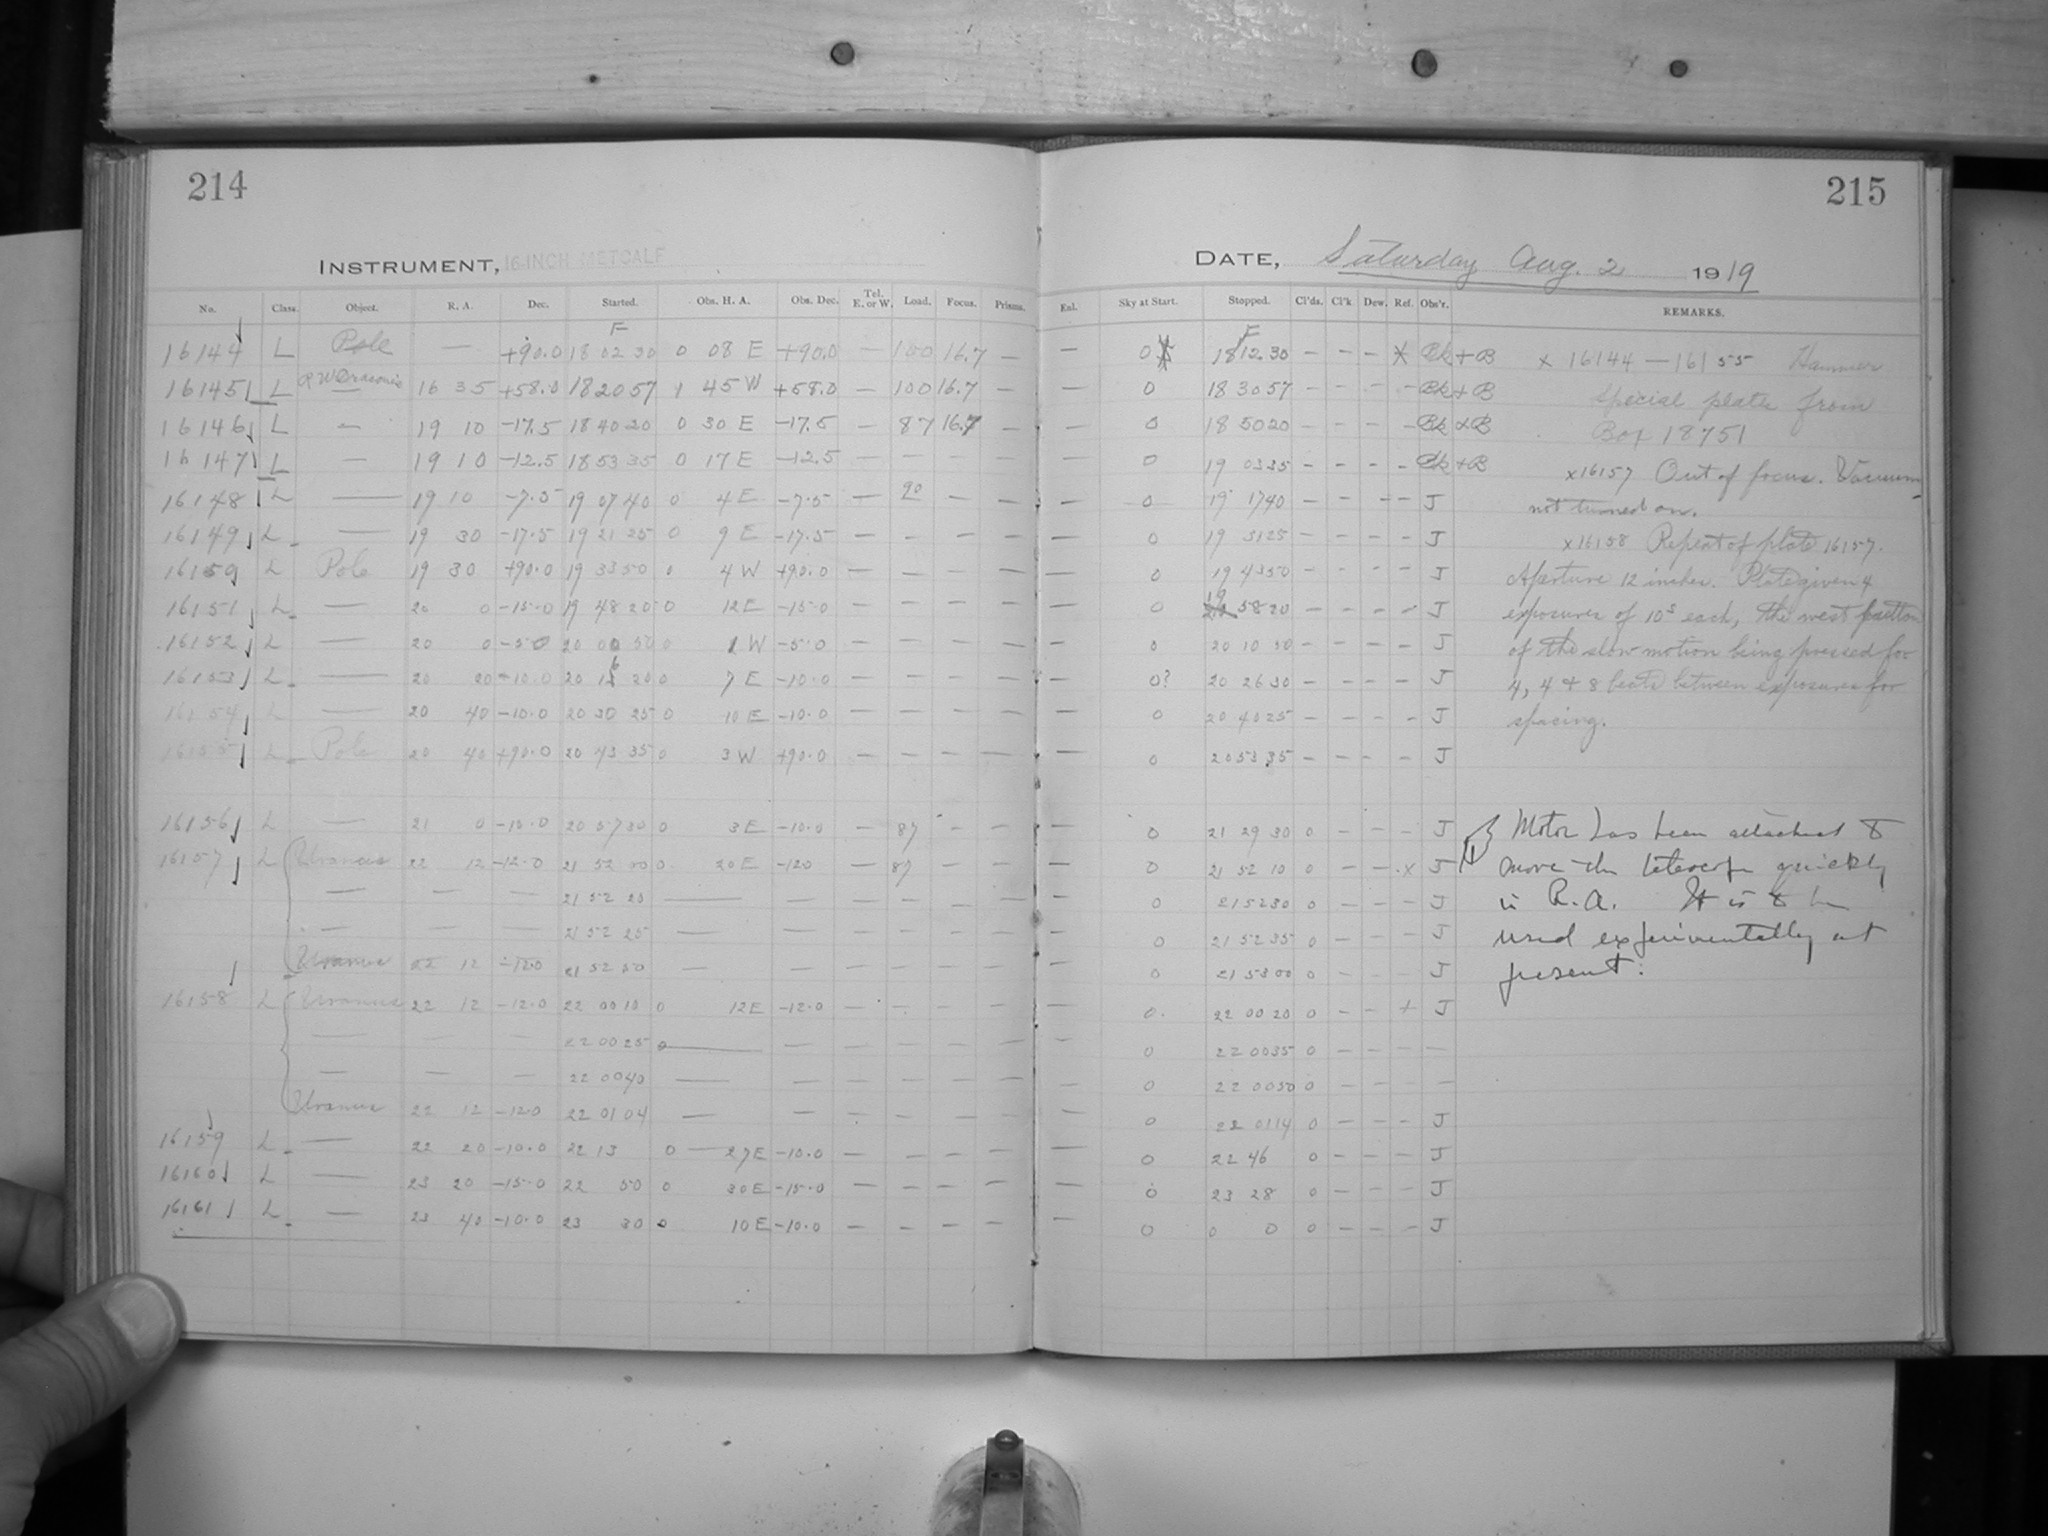 214
INSTRUMENT, 16-INCH METCALF
No. Class. Object. R. A. Dec. Started. Obs. H. A. Obs. Dec. Tel. E. or W. Load. Focus. Prisms.
16144 L Pole — +90.0 18 02 30 0 08 E +90.0 — 100 16.7 —
16145 L R W Draconis 16 35 +58.0 18 20 57 1 45 W +58.0 — 100 16.7 —
16146 L — 19 10 -17.5 18 40 20 0 30 E -17.5 — 87 16.7 —
16147 L — 19 10 -12.5 18 53 35 0 17 E -12.5 — — — —
16148 L — 19 10 -7.5 19 07 40 0 4 E -7.5 — 90 — —
16149 L — 19 30 -17.5 19 21 25 0 9 E -17.5 — — — —
16150 L Pole 19 30 +90.0 19 33 50 0 4 W +90.0 — — — —
16151 L — 20 0 -15.0 19 48 20 0 12 E -15.0 — — — —
16152 L — 20 0 -5.0 20 00 50 0 1 W -5.0 — — — —
16153 L — 20 20 -10.0 20 16 30 0 7 E -10.0 — — — —
16154 L — 20 40 -10.0 20 30 25 0 10 E -10.0 — — — —
16155 L Pole 20 40 +90.0 20 43 35 0 3 W +90.0 — — — —
16156 L — 21 0 -10.0 20 57 30 0 3 E -10.0 — 87 — —
16157 L Uranus 22 12 -12.0 21 52 00 0 20 E -12.0 — 87 — —
— — — 21 52 20 — — — — — —
— — — 21 52 25 — — — — — —
Uranus 22 12 -12.0 21 52 50 — — — — — —
16158 L Uranus 22 12 -12.0 22 00 10 0 12 E -12.0 — — — —
— — — 22 00 25 0 — — — — — —
— — — 22 00 40 — — — — — —
Uranus 22 12 -12.0 22 01 04 — — — — — —
16159 L — 22 20 -10.0 22 13 0 — 27 E -10.0 — — — —
16160 L — 23 20 -15.0 22 50 0 30 E -15.0 — — — —
16161 L — 23 40 -10.0 23 30 0 10 E -10.0 — — — —
215
DATE, Saturday Aug. 2 1919
Enl. Sky at Start. Stopped. Cl'ds. Cl'k Dew. Ref. Obs'r. REMARKS.
— 0 18 12 30 — — — X Bk + B
— 0 18 30 57 — — — — Bk + B
— 0 18 50 20 — — — — Bk + B
— 0 19 03 35 — — — — Bk + B
— 0 19 17 40 — — — — J
— 0 19 31 25 — — — — J
— 0 19 43 50 — — — — J
— 0 19 58 20 — — — — J
— 0 20 10 50 — — — — J
— 0? 20 26 30 — — — — J
— 0 20 40 25 — — — — J
— 0 20 53 35 — — — — J
— 0 21 29 30 0 — — — J
— 0 21 52 10 0 — — x J
— 0 21 52 30 0 — — — J
— 0 21 52 35 0 — — — J
— 0 21 53 00 0 — — — J
— 0 22 00 20 0 — — + J
— 0 22 00 35 0 — — — —
— 0 22 00 50 0 — — — —
— 0 22 01 14 0 — — — J
— 0 22 46 0 — — — J
— 0 23 28 0 — — — J
— 0 0 0 0 — — — J
x 16144 — 16155 Hammer
Special plates from
Box 18751
x16157 Out of focus. Vacuum
not turned on.
x16158 Repeat of plate 16157.
Aperture 12 inches. Plate given 4
exposures of 10s each, the west button
of the slow motion being pressed for
4, 4 & 8 beats between exposures for
spacing.
Motor has been attached to
move the telescope quickly
in R.A. It is to be
used experimentally at
present.